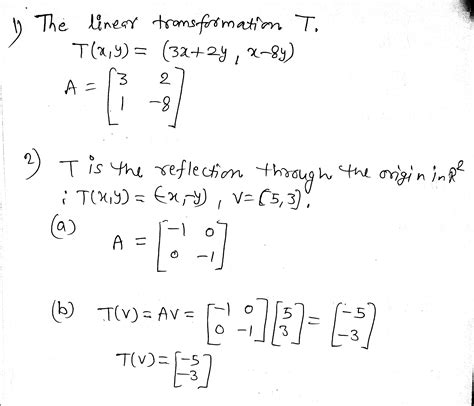 1) The linear transformation T.
T(x,y) = (3x+2y, x-8y)
A = [3 2
1 -8]
2) T is the reflection through the origin in R²
: T(x,y) = (-x,-y), V=(5,3).
(a)
A = [-1 0
0 -1]
(b) T(V) = AV = [-1 0 [5 = [-5
0 -1] 3] -3]
T(V) = [-5
-3]